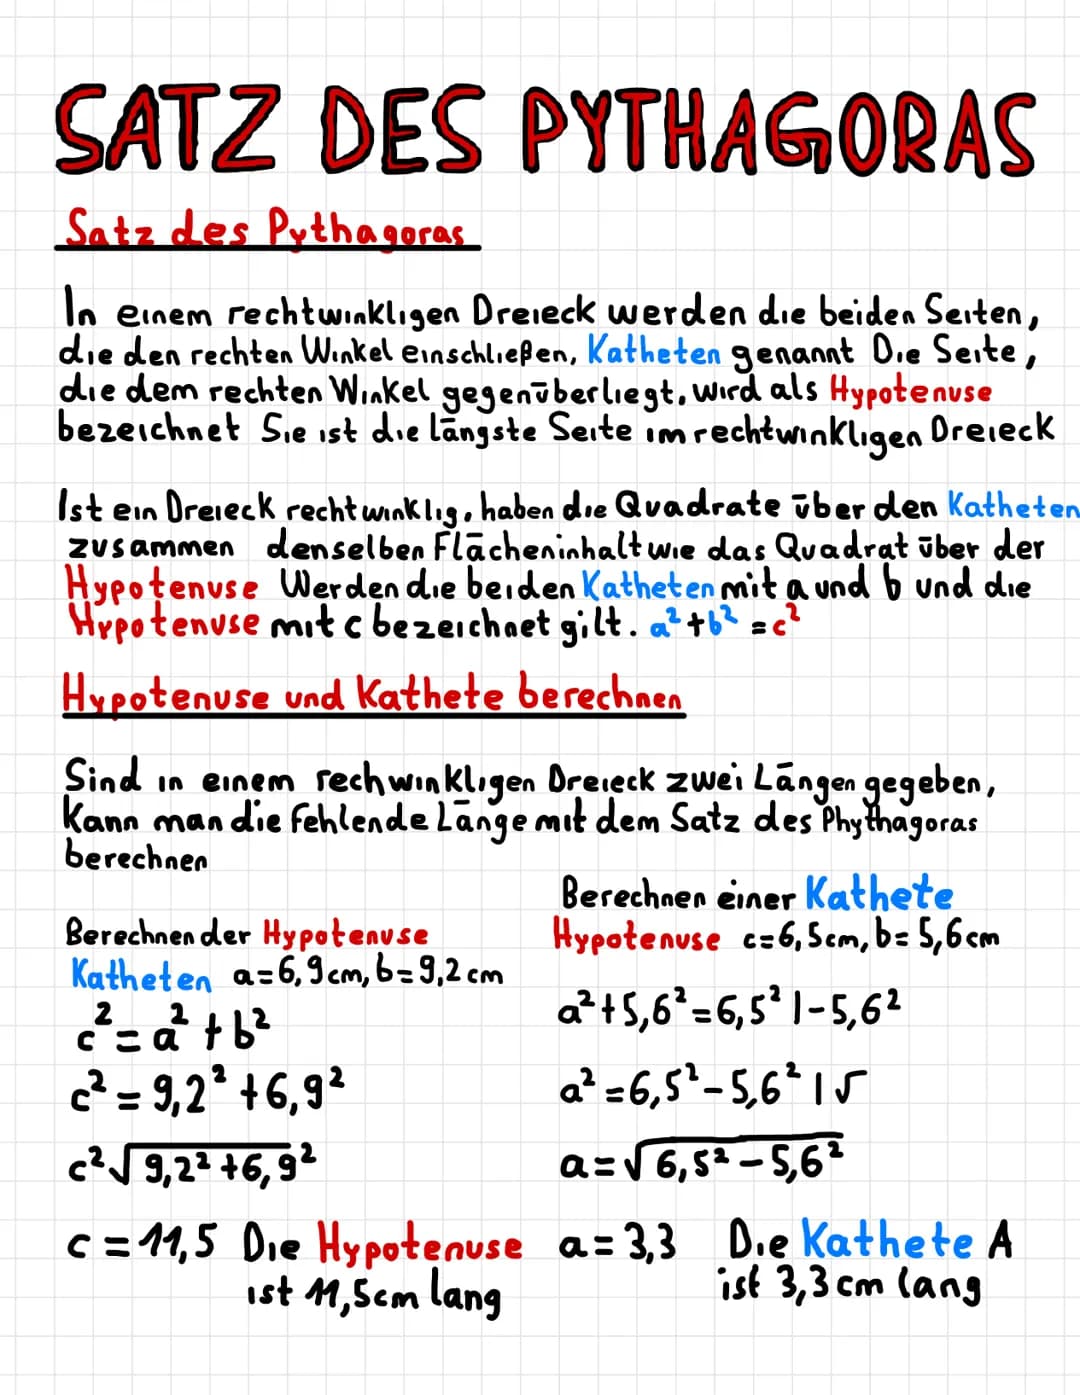 SATZ DES PYTHAGORAS
Satz des Pythagoras
In einem rechtwinkligen Dreieck werden die beiden Seiten,
die den rechten Winkel einschließen, Katheten genannt Die Seite,
die dem rechten Winkel gegenüberliegt, wird als Hypotenuse
bezeichnet Sie ist die längste Seite im rechtwinkligen Dreieck
Ist ein Dreieck rechtwinklig, haben die Quadrate über den Katheten
zusammen denselben Flächeninhalt wie das Quadrat über der
Hypotenuse Werden die beiden Katheten mit a und b und die
Hypotenuse mit c bezeichnet gilt. a²+b²=c²
Hypotenuse und Kathete berechnen
Sind in einem rechwinkligen Dreieck zwei Längen gegeben,
Kann man die fehlende Länge mit dem Satz des Phythagoras
berechnen
Berechnen der Hypotenuse
Katheten a=6,9cm, b=9,2cm
c²=a²+b²
c²=9,2²+6,9²
c²√9,2²+6,9²
c=11,5 Die Hypotenuse
ist 11,5cm lang
Berechnen einer Kathete
Hypotenuse c=6,5cm, b=5,6cm
a²+5,6²=6,5² |-5,6²
a²=6,5²-5,6² |√
a=√6,5²-5,6²
a=3,3 Die Kathete A
ist 3,3cm lang